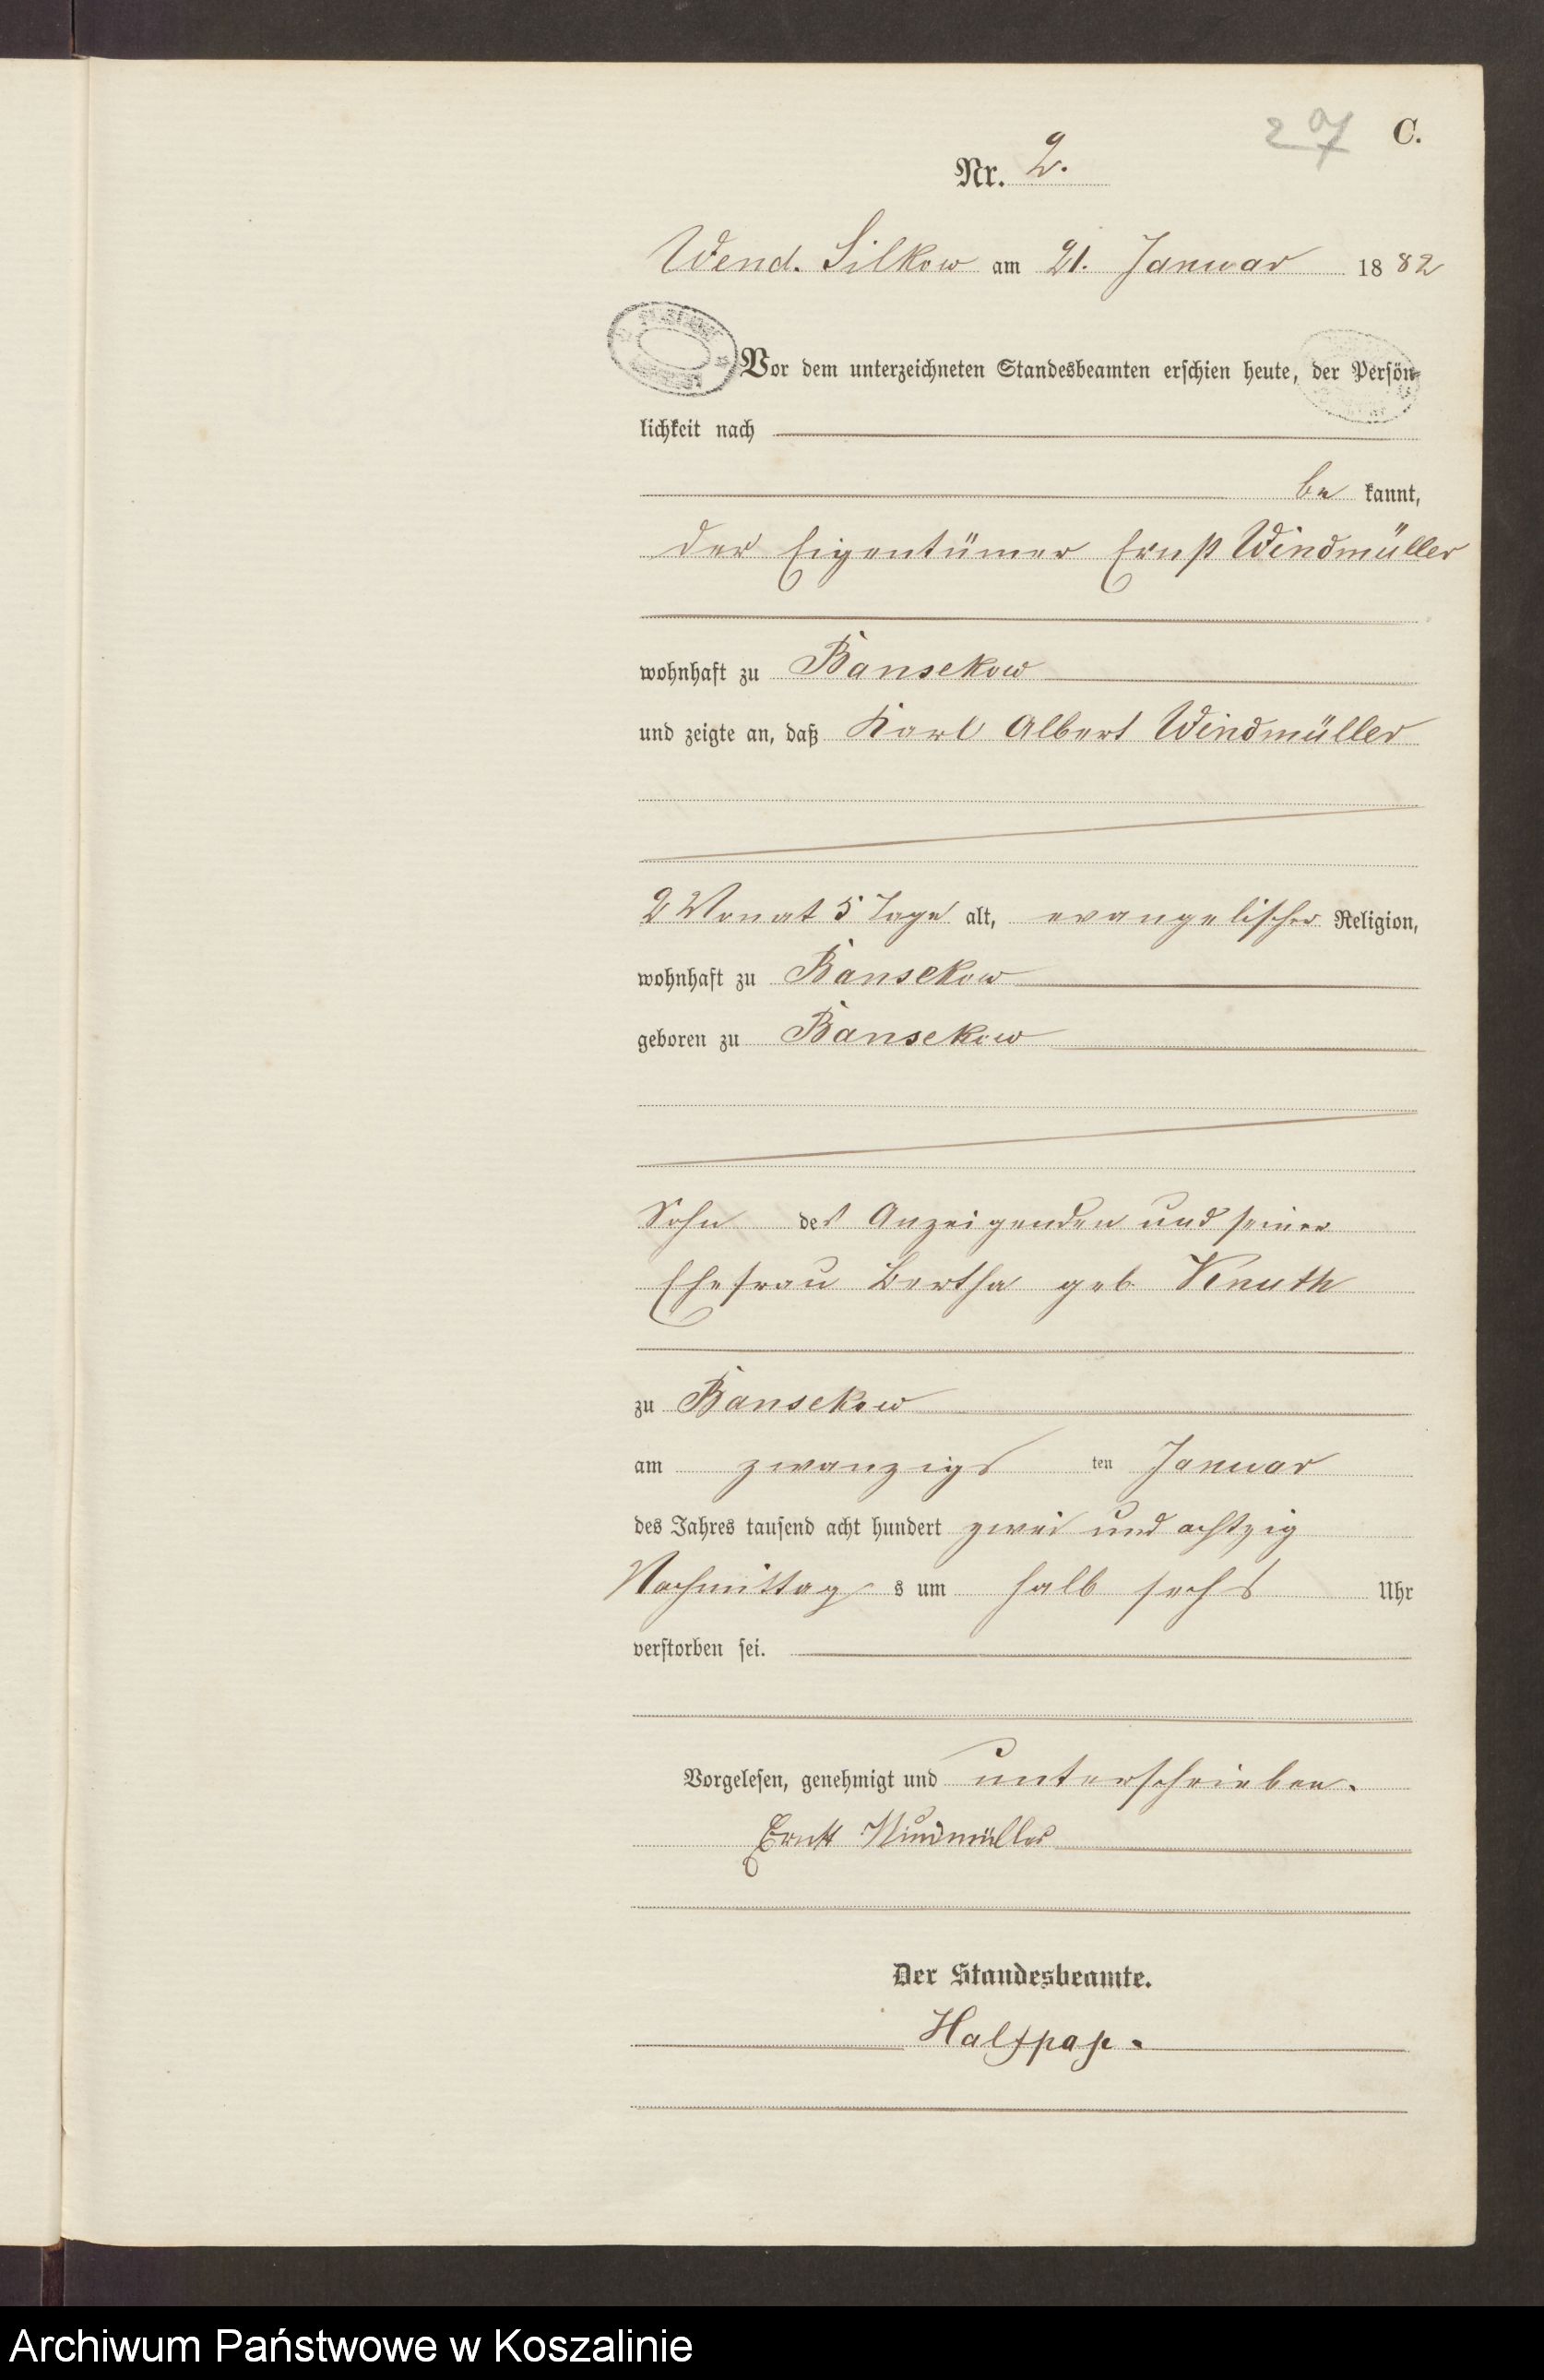 207 C.
Nr. 2.
Wend. Silkow am 21. Januar 1882
Vor dem unterzeichneten Standesbeamten erschien heute, der Persön-
lichkeit nach
be kannt,
der Eigentümer Ernst Windmüller
wohnhaft zu Bansekow
und zeigte an, daß Karl Albert Windmüller
2 Monat 5 Tage alt, evangelischer Religion,
wohnhaft zu Bansekow
geboren zu Bansekow
Sohn des Anzeigenden und seiner
Ehefrau Bertha geb. Knuth
zu Bansekow
am zwanzigs ten Januar
des Jahres tausend acht hundert zwei und achtzig
Nachmittag s um halb sechs Uhr
verstorben sei.
Vorgelesen, genehmigt und unterschrieben.
Ernst Windmüller
Der Standesbeamte.
Halfpap.
Archiwum Państwowe w Koszalinie